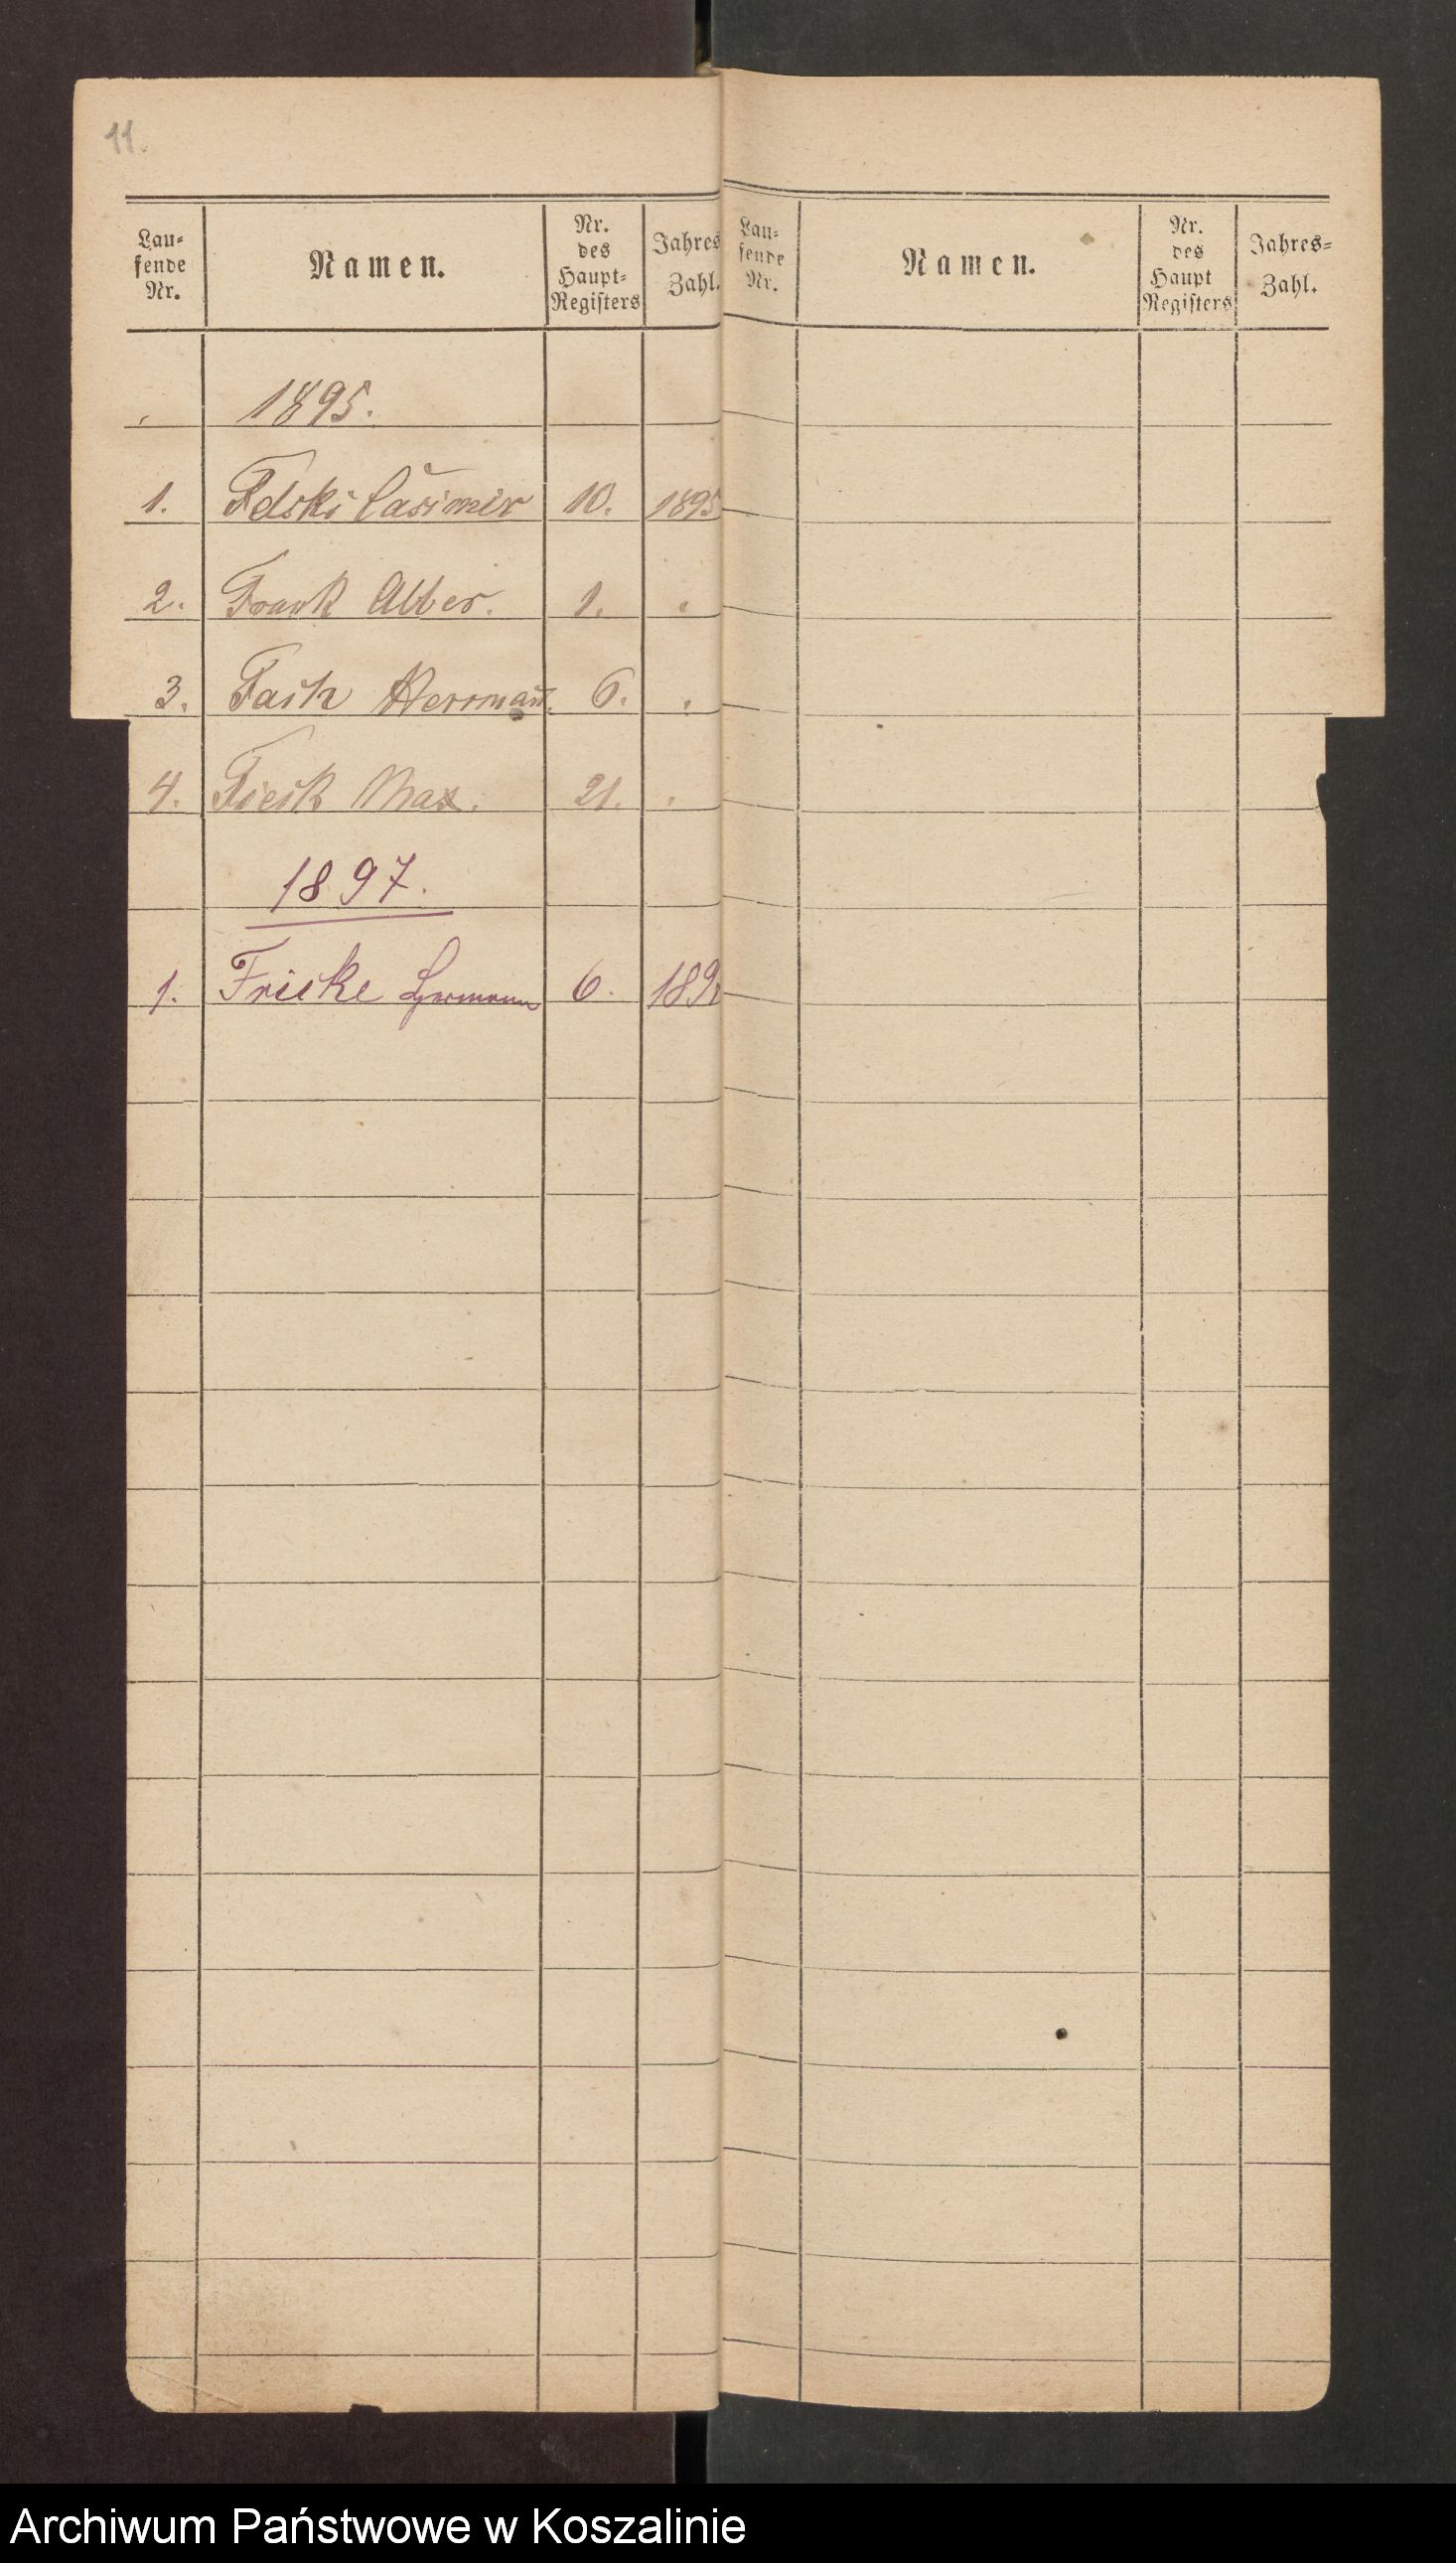 11.
Laufende Nr. Namen. Nr. des Haupt-Registers Jahres Zahl.
1895.
1. Felski Casimir 10. 1895
2. Frank Alber. 1. "
3. Herrmañ. 6. "
4. Max. 21. "
1897.
1. Fricke Hermann 6. 189
Laufende Nr. Namen. Nr. des Haupt Registers Jahres-Zahl.
Archiwum Państwowe w Koszalinie